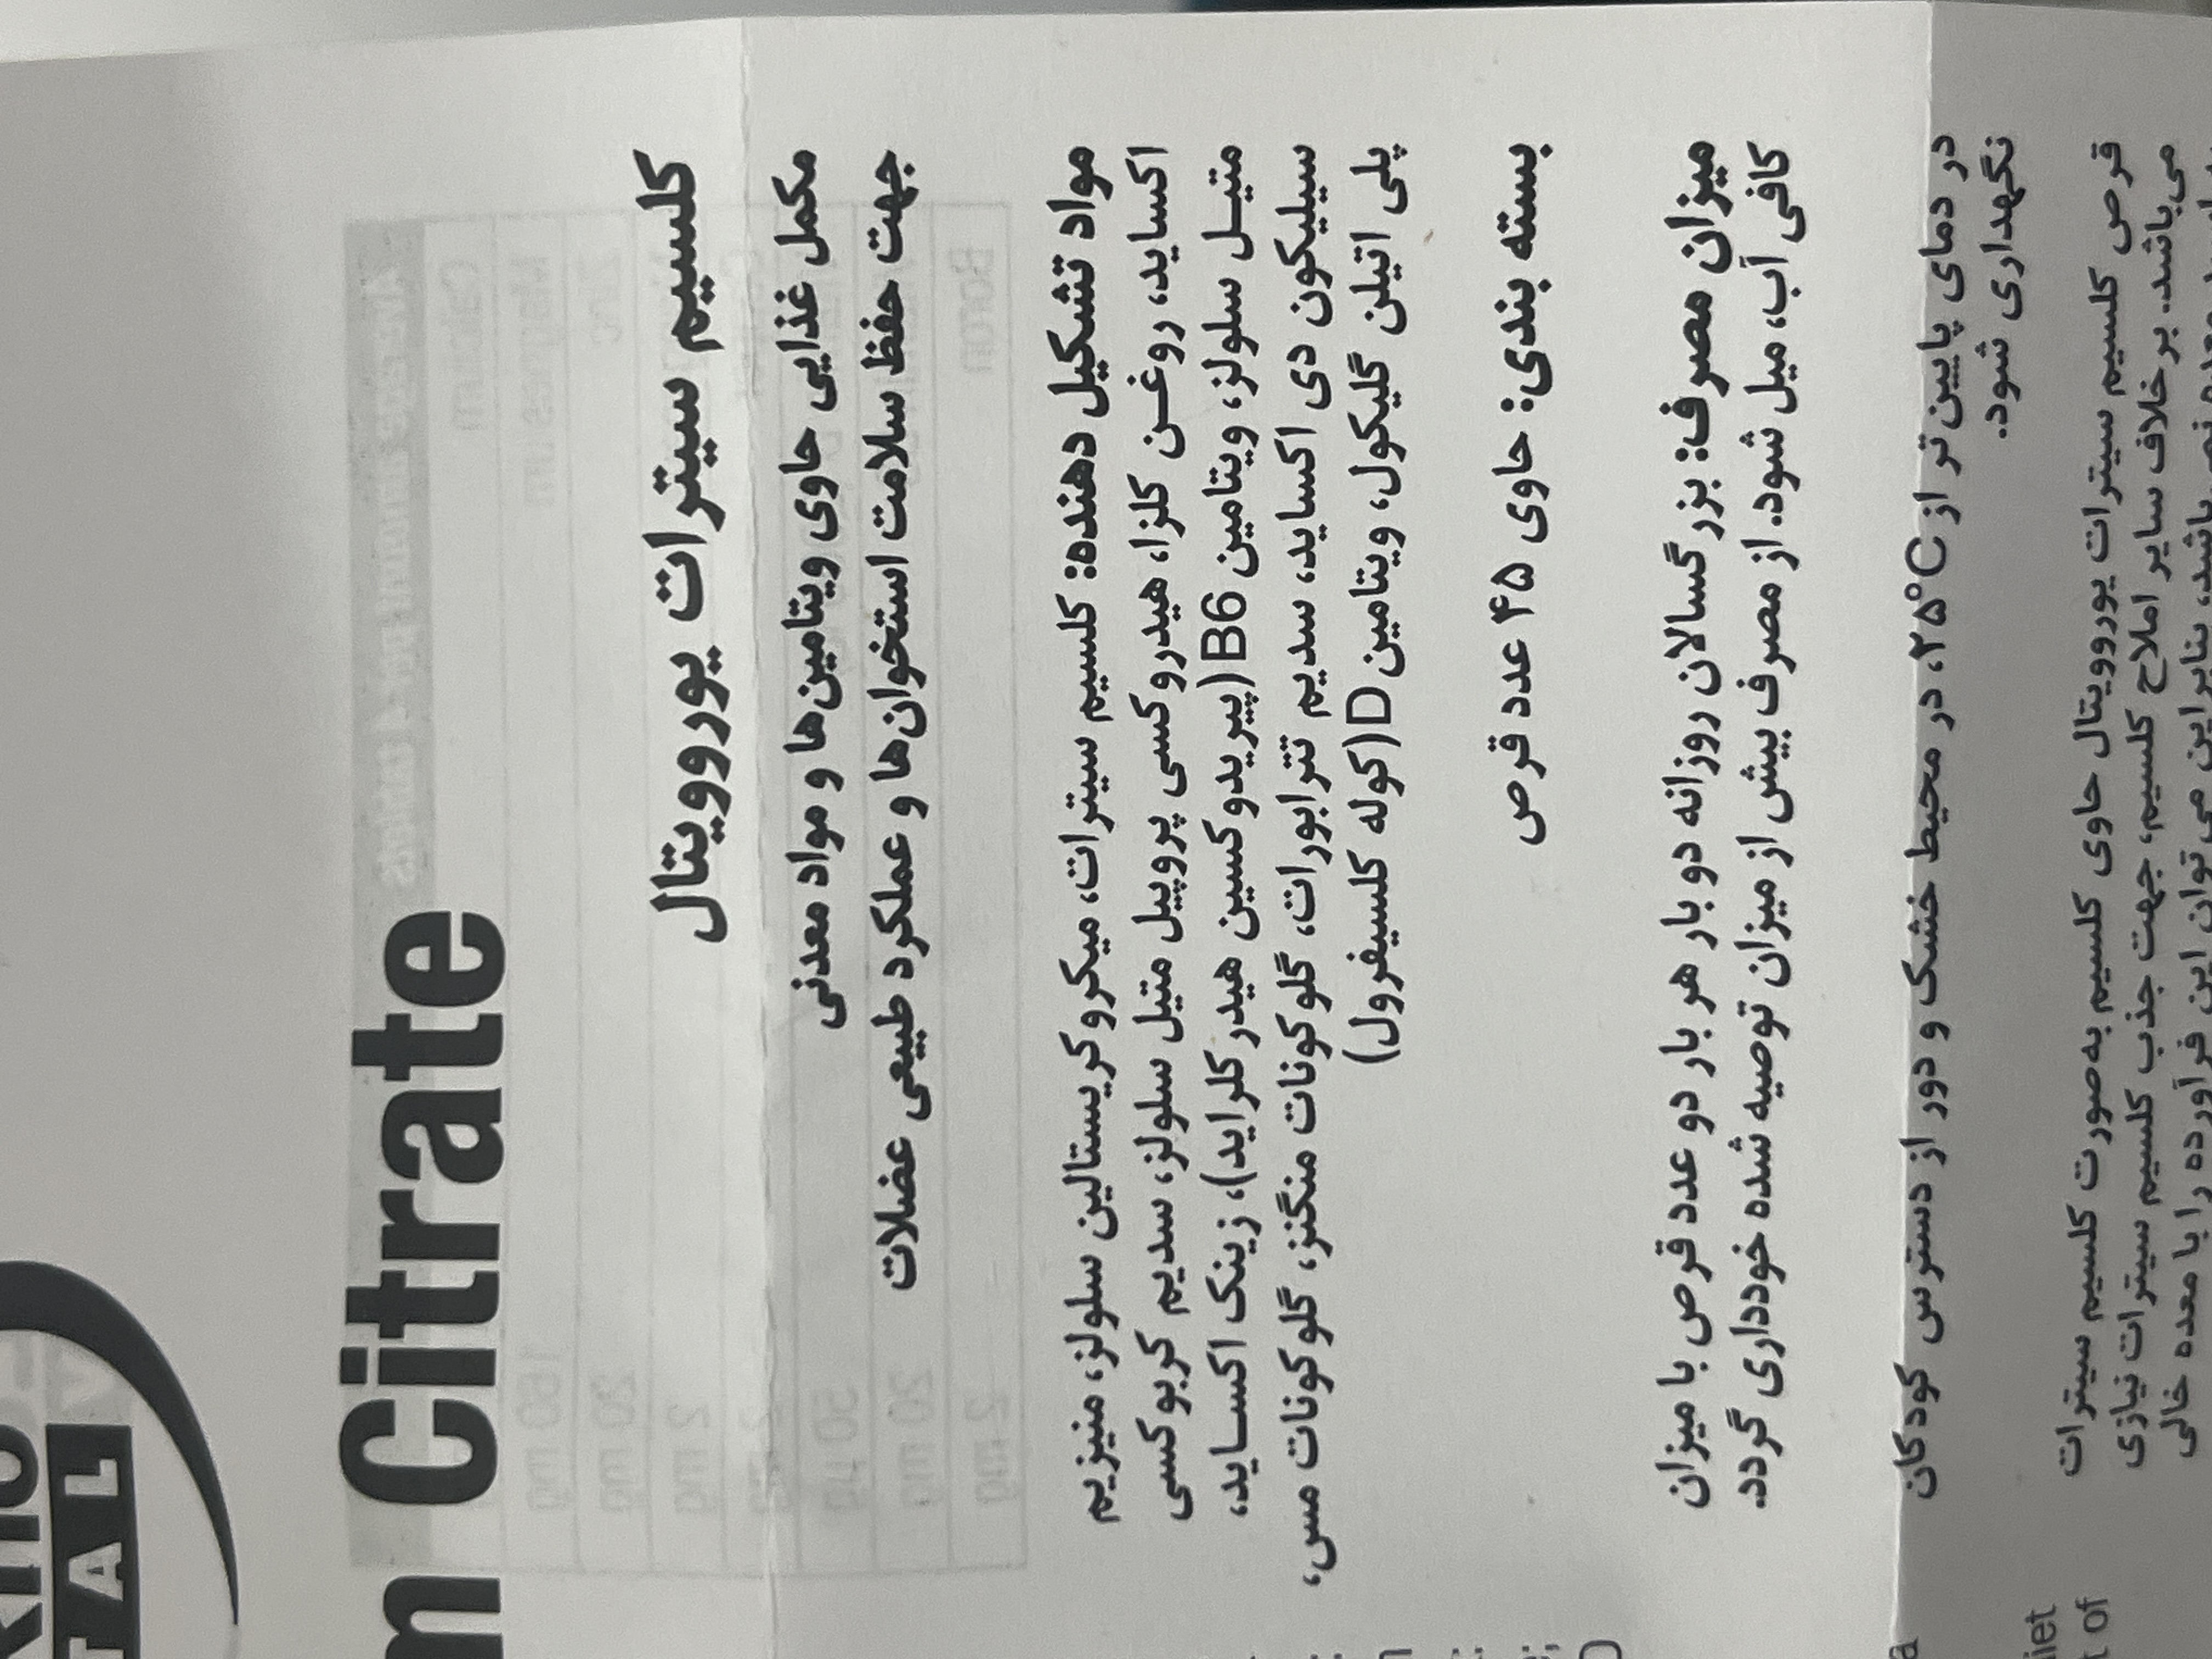 Citrate
کلسیم سیترات یوروویتال
مکمل غذایی حاوی ویتامین‌ها و مواد معدنی
جهت حفظ سلامت استخوان‌ها و عملکرد طبیعی عضلات
مواد تشکیل دهنده: کلسیم سیترات، میکروکریستالین سلولز، منیزیم
اکساید، روغن کلزا، هیدروکسی پروپیل متیل سلولز، سدیم کربوکسی
متیل سلولز، ویتامین B6 (پیریدوکسین هیدرکلراید)، زینک اکساید،
سیلیکون دی اکساید، سدیم تترابورات، گلوکونات منگنز، گلوکونات مس،
پلی اتیلن گلیکول، ویتامین D (کوله کلسیفرول)
بسته بندی: حاوی ۴۵ عدد قرص
میزان مصرف: بزرگسالان روزانه دو بار هر بار دو عدد قرص با میزان
کافی آب، میل شود. از مصرف بیش از میزان توصیه شده خودداری گردد.
در دمای پایین‌تر از ۲۵°C، در محیط خشک و دور از دسترس کودکان
نگهداری شود.
قرص کلسیم سیترات یوروویتال حاوی کلسیم به‌صورت کلسیم سیترات
می‌باشد. برخلاف سایر املاح کلسیم، جهت جذب کلسیم سیترات نیازی
بنابراین می‌توان این فرآورده را با معده خالی